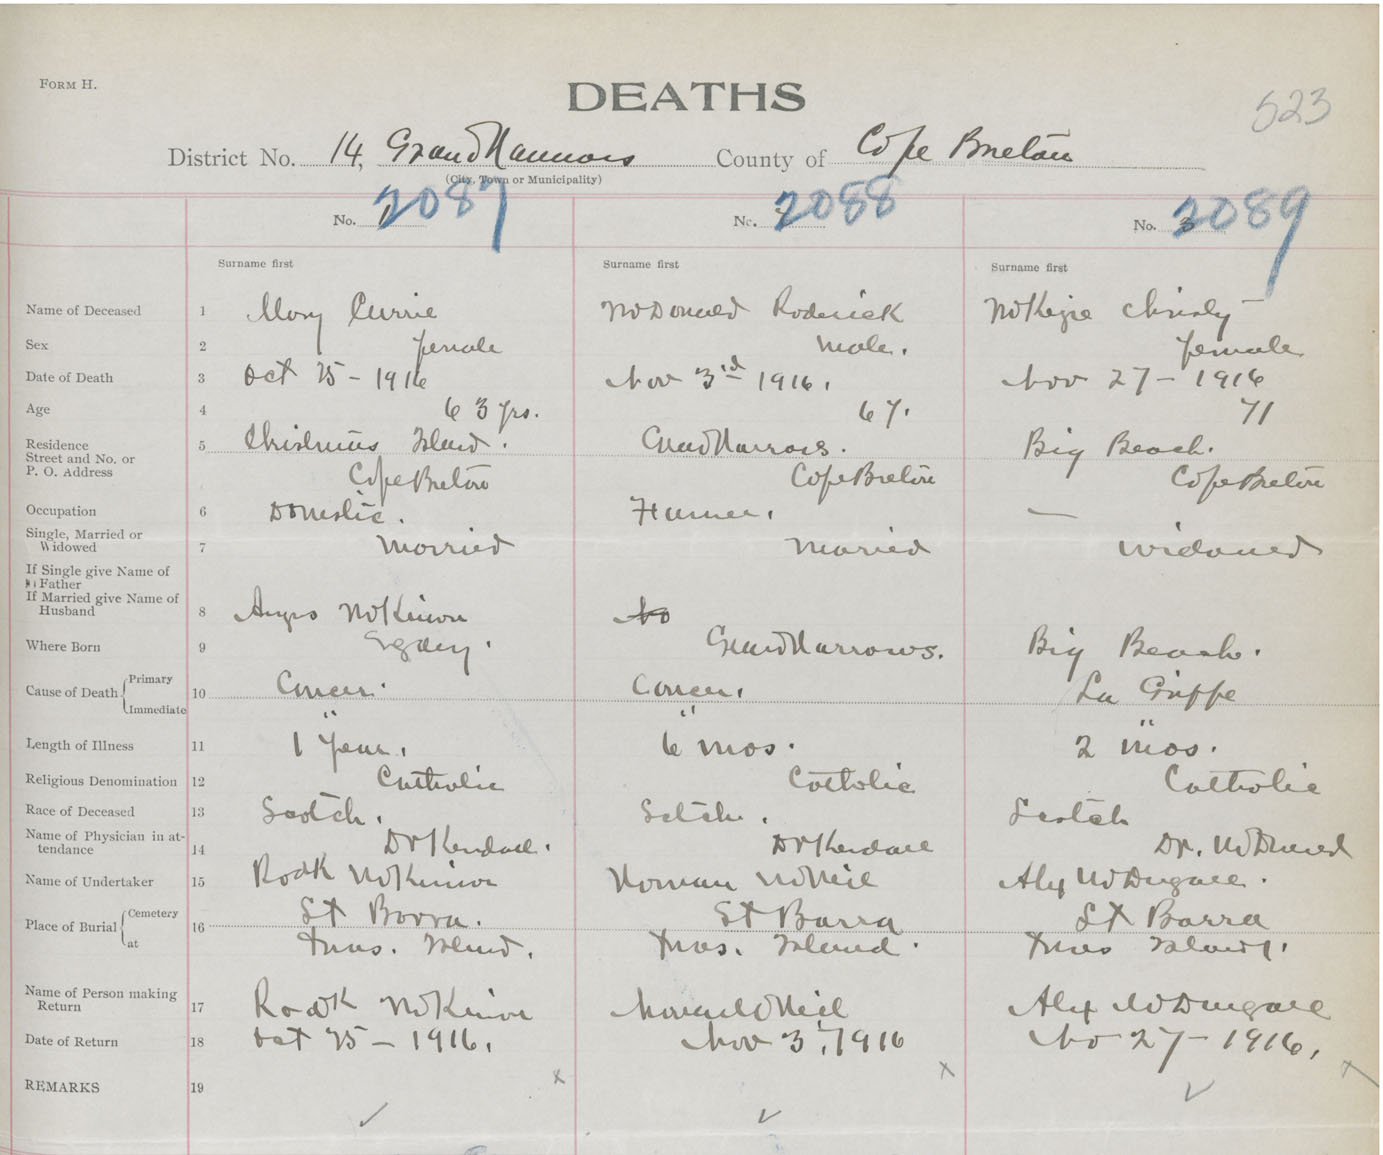 FORM H.
DEATHS
523
District No. 14, Grand Narrows County of Cape Breton
(City, Town or Municipality)
No. 1 2087 No. 2088 No. 3 2089
Surname first Surname first Surname first
Name of Deceased 1 Mary Currie McDonald Roderick McKezie Christy
Sex 2 female Male. female
Date of Death 3 Oct 25 - 1916 Nov 3rd 1916. Nov 27 - 1916
Age 4 63 yrs. 67. 71
Residence 5 Christmas Island. Grand Narrows. Big Beach.
Street and No. or
P. O. Address Cape Breton Cape Breton Cape Breton
Occupation 6 Domestic. Farmer. —
Single, Married or
Widowed 7 Married Maried widowed
If Single give Name of
Father
If Married give Name of
Husband 8 Angus McKinnon No
Where Born 9 Grand Narrows. Big Beach.
Cause of Death Primary 10 Cancer. Cancer. La Grippe
Immediate " " "
Length of Illness 11 1 Year. 6 mos. 2 mos.
Religious Denomination 12 Catholic Catholic Catholic
Race of Deceased 13 Scotch. Sctch. Scotch
Name of Physician in at-
tendance 14 Dr Kendall. Dr Kendall Dr. McDonald
Name of Undertaker 15 Rodk McKinnon Norman McNeil Alex McDugall.
Place of Burial Cemetery 16 St Barra. St Barra St Barra
at Xmas. Island. Xmas. Island. Xmas Island.
Name of Person making
Return 17 Rodk McKinnon Norman McNeil Alex McDugall
Date of Return 18 Oct 25 - 1916. Nov 3, 1916 No 27 - 1916.
REMARKS 19